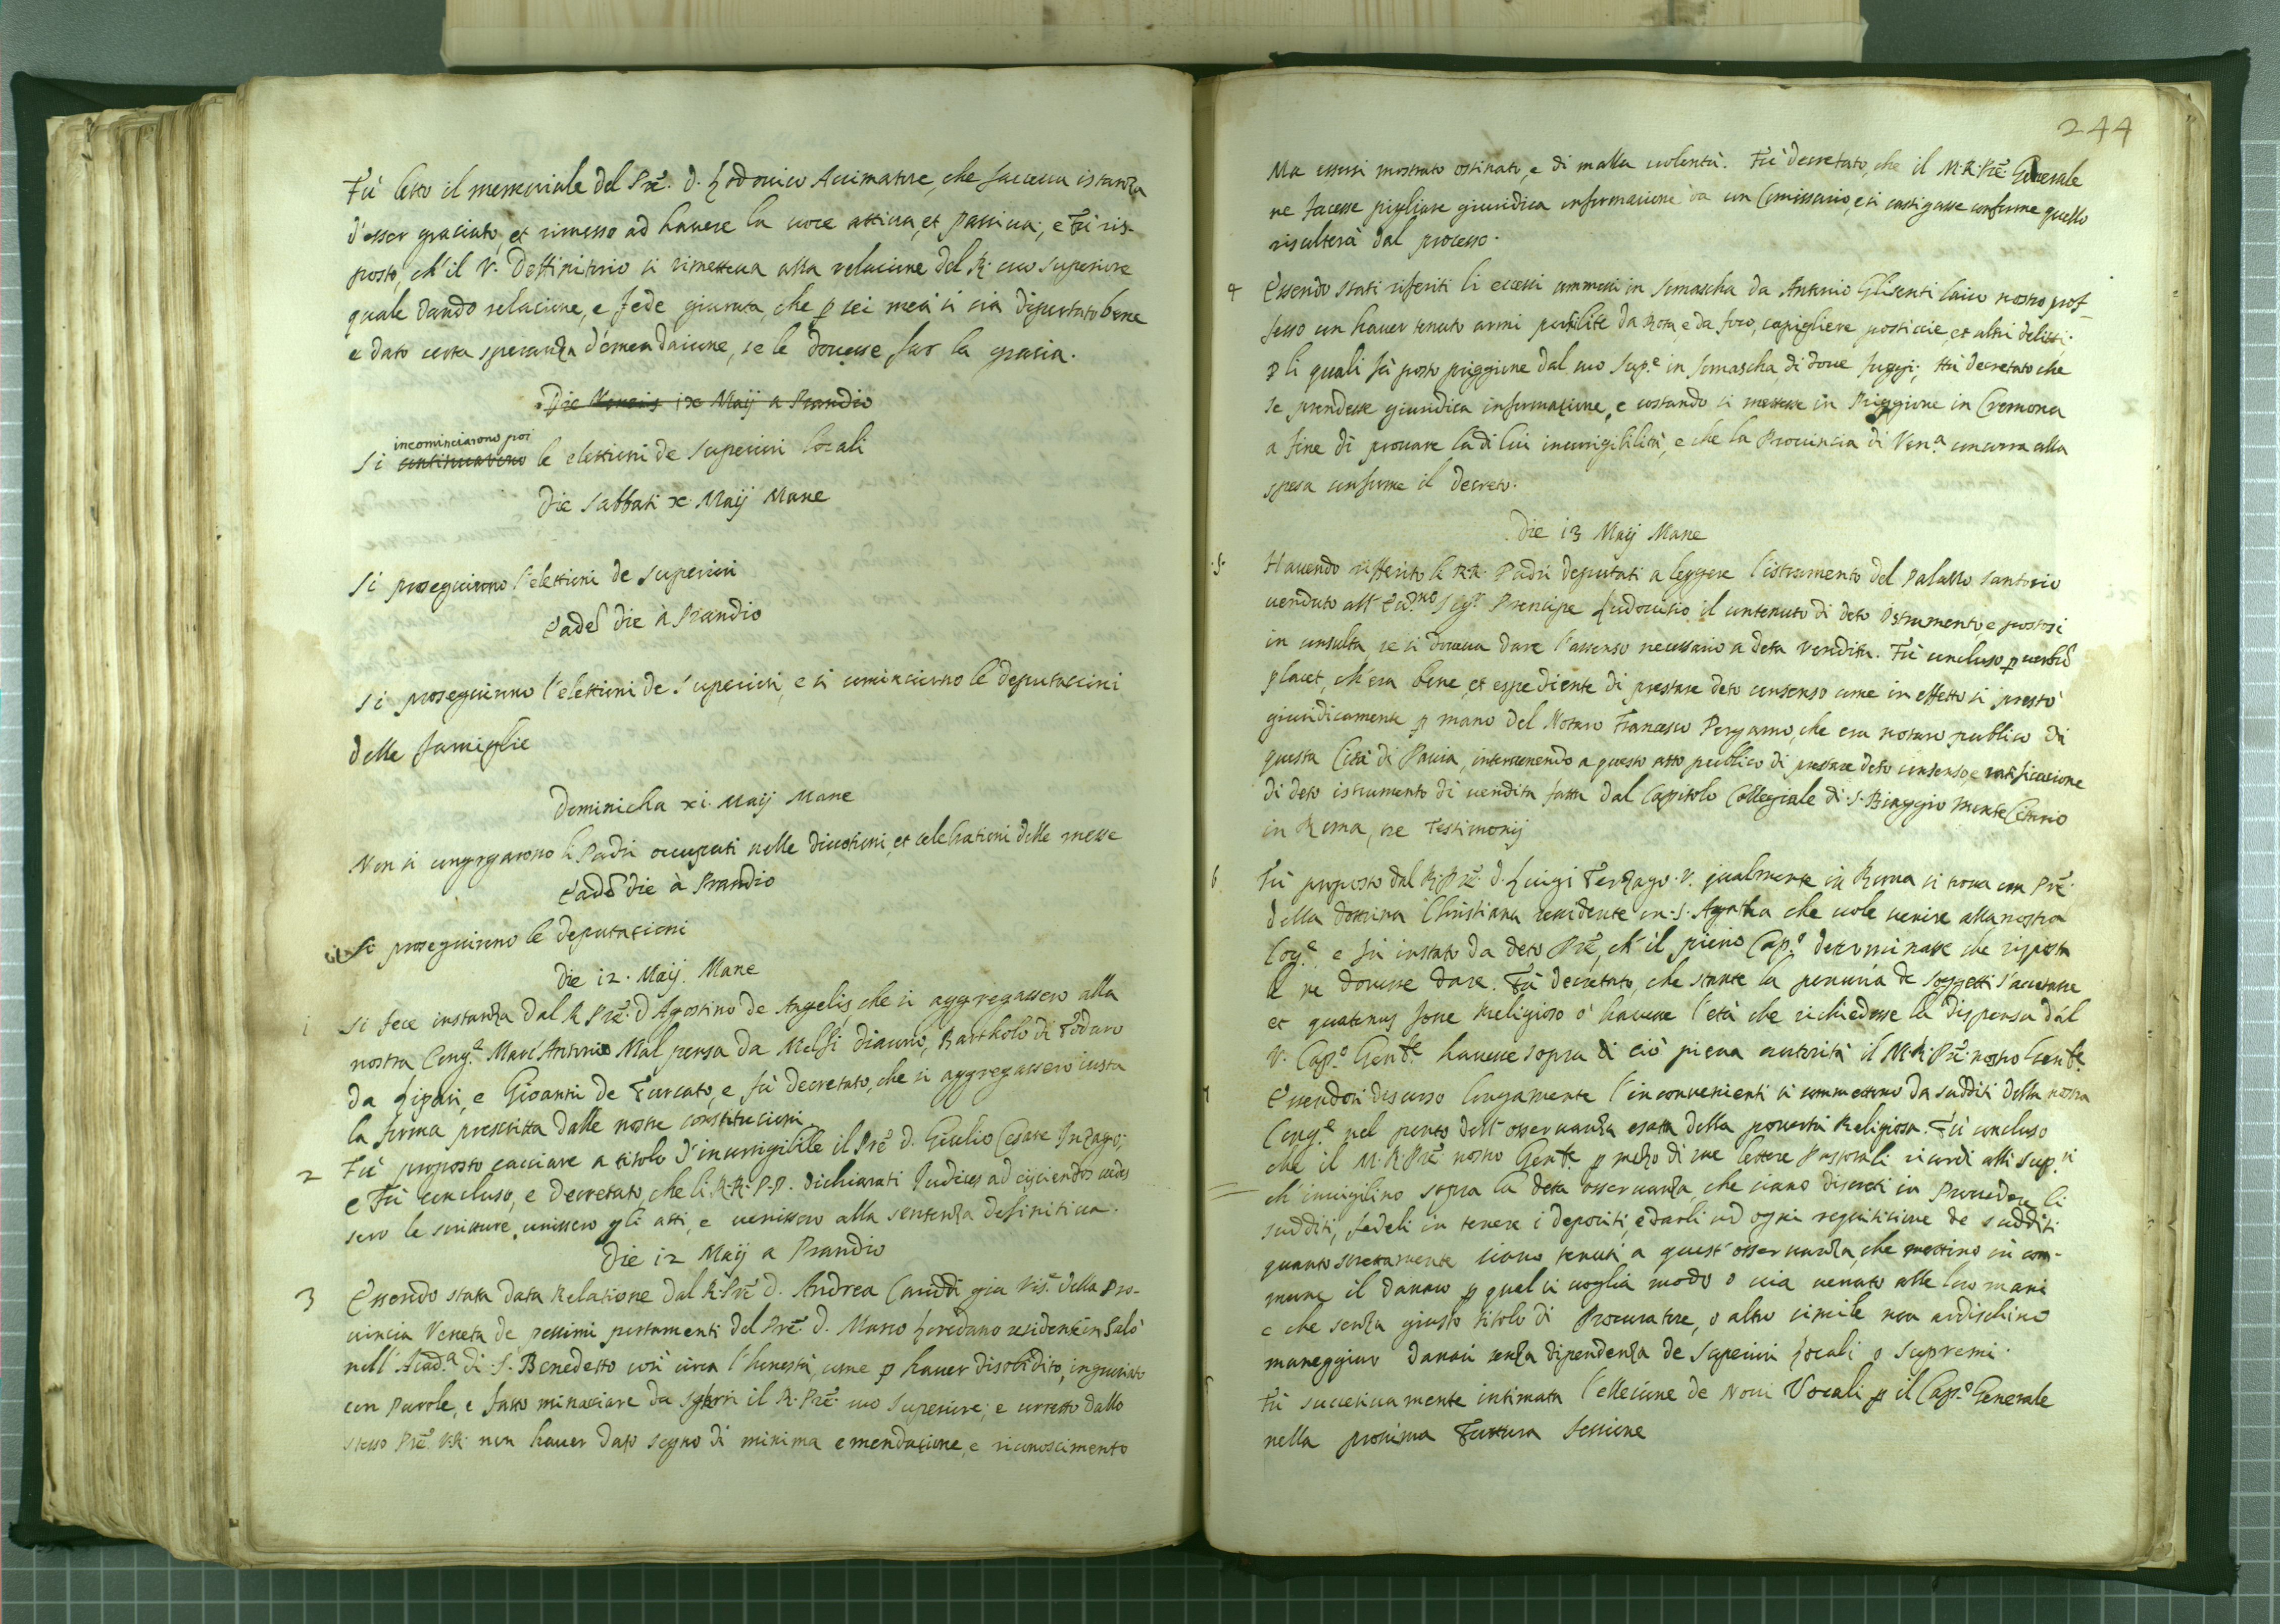 Fù letto il memoriale del Prē. D. Lodovico Animatore, che faceva istanza
d'esser graciato, et rimesso ad havere la voce attiva, et passiva; e Fù ris-
posto, ch'il V. Deffinitorio si rimetteva alla relacione del R. suo superiore
quale dando relacione, e fede giurata, che p sei mesi si sia diportato bene
e dato certa speranza d'emendacione, se le dovesse far la gracia.
Die Veneris ix Maij a Prandio
incominciarono poi
Si continuarono le elettioni de superiori locali
Die Sabbati x Maij Mane
Si proseguirono l'elettioni de superiori
Eadē die à Prandio
Si proseguirono l'elettioni de Superiori, e si cominciorno le deputaccioni
delle famiglie
Dominicha xi Maij Mane
Non si congregarono li Padri occupati nelle divotioni, et celebrationi delle messe
Eadē die à Prandio
Si proseguirono le deputationi
Die 12. Maij. Mane
1 Si fece instanza dal R Prē. D Agostino de Angelis, che si aggregassero alla
nostra Cong.a Marc'Antonio Mal pensa da Melfi diacono, Bartholo di Fodaro
da Lipari, e Gioanni de Turcato, e fù decretato, che si aggregassero iusta
la forma prescritta dalle nostre constitucioni.
2 Fù proposto cacciare a titolo d'incorrigibile il Prē D. Giulio Cesare Inzago;
e Fù concluso, e decretato, che li R.R. P.P. dichiarati Judices ad eijciendos vides
sero le scritture, unissero gli atti, e venissero alla sentenza definitiva.
Die 12 Maij a Prandio
3 Essendo stata data Relatione dal R. Prē D. Andrea Canddi gia Vis.e della Pro-
vincia Veneta de pessimi portamenti del Prē. D. Marco Loredano residente in Salò
nell'Acad.a di S. Benedetto così circa l'honestà, come p haver disobidito, ingiuriato
con parole, e fatto minaciare da sgherri il R. Prē. suo superiore; e corretto dallo
stesso Prē V.R. non haver dato segno di minima emendacione, e riconoscimento
244
Ma essersi mostrato ostinato, e di malla volentà. Fù decretato, che il M.R. Prē. Generale
ne facesse pigliare giuridica informacione da un Comissario, e si castigasse conforme quello
risulterà dal processo.
4 Essendo stati riferiti li eccessi commessi in Somascha da Antonio Glisenti laico nostro prof-
fesso con haver tenuto armi prohibite da Rota, e da foco, capigliere posticcie, et altri delitti;
p li quali fù posto priggione dal suo Sup.e in Somascha, di dove fuggi; Fù decretato che
se prendesse giuridica informacione, e costando si mettesse in Priggione in Cremona
a fine di provare la di lui incorrigibilità, e che la Provincia di Ven.a concorra alla
spesa conforme il decreto.
Die 13 Maij Mane
5 Havendo riferito li R.R. Padri deputati a leggere l'istrumento del Palazzo Santorio
venduto all' Ecc.mo Sig.r Prencipe Ludovisio il contenuto di deto Istrumento, e postosi
in consulta, se si doveva dare l'assenso necessario a deta vendita. Fù concluso p verbū
placet, ch'era bene, et espediente di prestare deto consenso come in effetto si prestò
giuridicamente p mano del Notaro Francesco Pergamo, che era notaro publico di
questa Cità di Pavia, intervenendo a questo atto publico di prestare deto consenso, e ratificacione
di deto istrumento di vendita fatta dal Capitolo Collegiale di S. Biaggio Monte Citorio
in Roma, tre Testimonij
6 Fù proposto dal R. Prē. D. Luigi Terzago V. qualmente in Roma si trova con Prē.
della Dottrina Christiana residente in S. Agatha che vole venire alla nostra
Cog.e e fù instato da deto Prē, ch'il pieno Cap.o determinasse che risposta
se ne dovesse dare. Fù decretato, che stante la penuria de soggetti s'accettasse
et quatenus fosse Religioso ò havesse l'età che richiedesse la dispensa dal
V. Cap.o Gen.le havesse sopra di ciò piena autorità il M.R. Prē. nostro Gen.le
7 Essendosi discorso longamente l'inconvenienti si commettono da sudditi della nostra
Cong.e nel punto dell'osservanza esatta della povertà Religiosa. Fù concluso
che il M.R. Prē nostro Gen.le p mezo di sue lettere Pastorali ricordi alli Sup.ri
ch'invigilino sopra la deta osservanza, che siano discreti in Proveder li
sudditi, fedeli in tenere i depositi, e darli ad ogni requisitione de sudditi
quanto strettamente siano tenuti a quest'osservanza, che mettino in com-
mune il danaro p qual si voglia modo o via venuto alle loro mani
e che senza giusto titolo di Procuratore, o altro simile non ardischino
maneggiar danari senza dipendenza de Superiori Locali o Supremi.
Fù succesivamente intimata l'ellecione de Novi Vocali p il Cap.o Generale
nella prosima Futtura Sessione